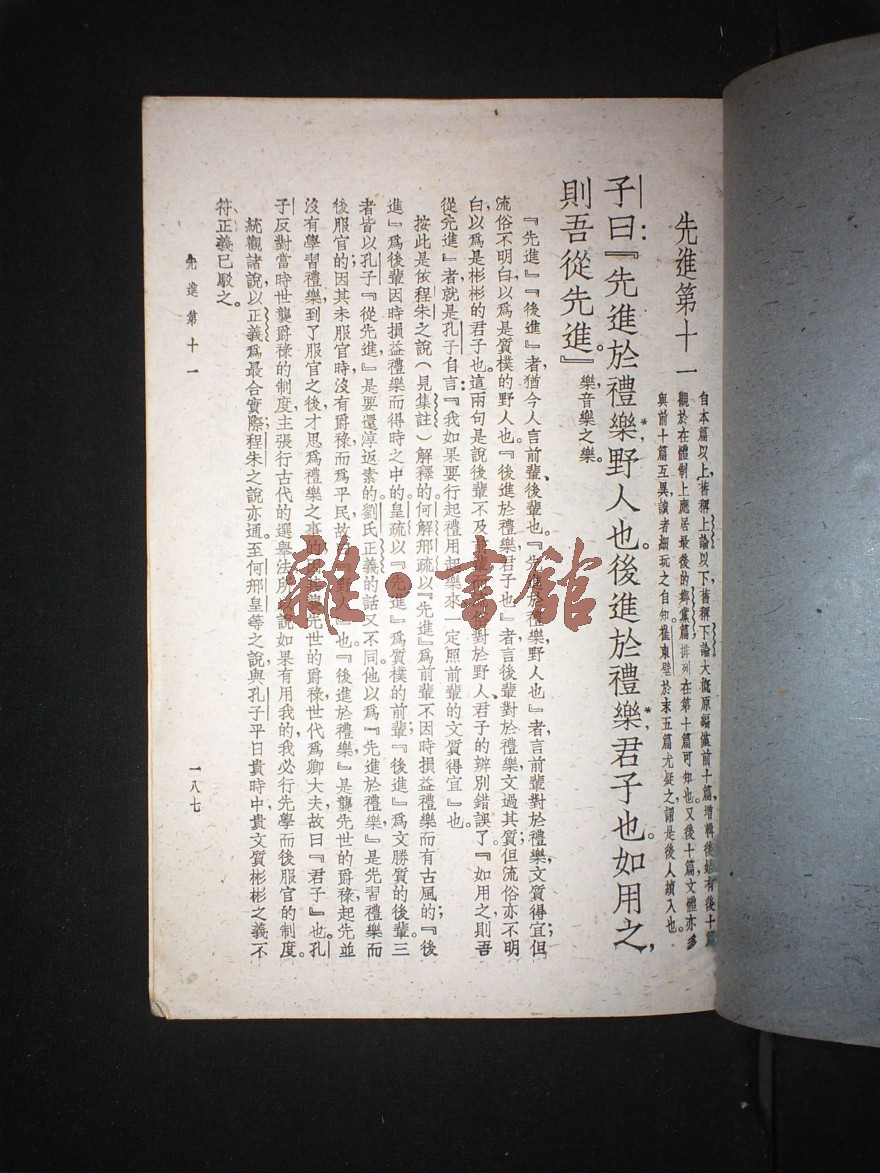 先進第十一
自本篇以上，舊稱上論，以下舊稱下論，大概原編僅前十篇，增輯後始有後十篇。
觀於在體制上應居最後的鄉黨篇排列在第十篇可知也。又後十篇文體亦多
與前十篇互異，讀者細玩之自知。崔東壁於末五篇尤疑之，謂是後人續入也。
子曰：『先進於禮樂*，野人也。後進於禮樂*，君子也。如用之，
則吾從先進。』樂，音樂之樂。
『先進』『後進』者，猶今人言前輩、後輩也。『先進於禮樂，野人也』者，言前輩對於禮樂，文質得宜；但
流俗不明白，以爲是質樸的野人也。『後進於禮樂，君子也』者，言後輩對於禮樂，文過其質；但流俗亦不明
白，以爲是彬彬的君子也。這兩句是說後輩不及前輩，而流俗對於野人、君子的辨別錯誤了。『如用之，則吾
從先進』者，就是孔子自言：『我如果要行起禮用起樂來，一定照前輩的文質得宜』也。
按此是依程朱之說（見集註）解釋的。何解邢疏以『先進』爲前輩不因時損益禮樂而有古風的；『後
進』爲後輩因時損益禮樂而得時之中的。皇疏以『先進』爲質樸的前輩；『後進』爲文勝質的後輩。三
者皆以孔子『從先進』是要還淳返素的。劉氏正義的話又不同，他以爲『先進於禮樂』是先習禮樂而
後服官的，因其未服官時，沒有爵祿，而爲平民，故曰『野人』也。『後進於禮樂』是襲先世的爵祿，起先並
沒有學習禮樂，到了服官之後，才思爲禮樂之事的，因其襲先世的爵祿，世代爲卿大夫，故曰『君子』也。孔
子反對當時世襲爵祿的制度，主張行古代的選舉法，所以說如果有用我的，我必行先學而後服官的制度。
統觀諸說，以正義爲最合實際，程朱之說亦通。至何邢皇等之說，與孔子平日貴時中，貴文質彬彬之義不
符，正義已駁之。
先進第十一
一八七
雜·書館